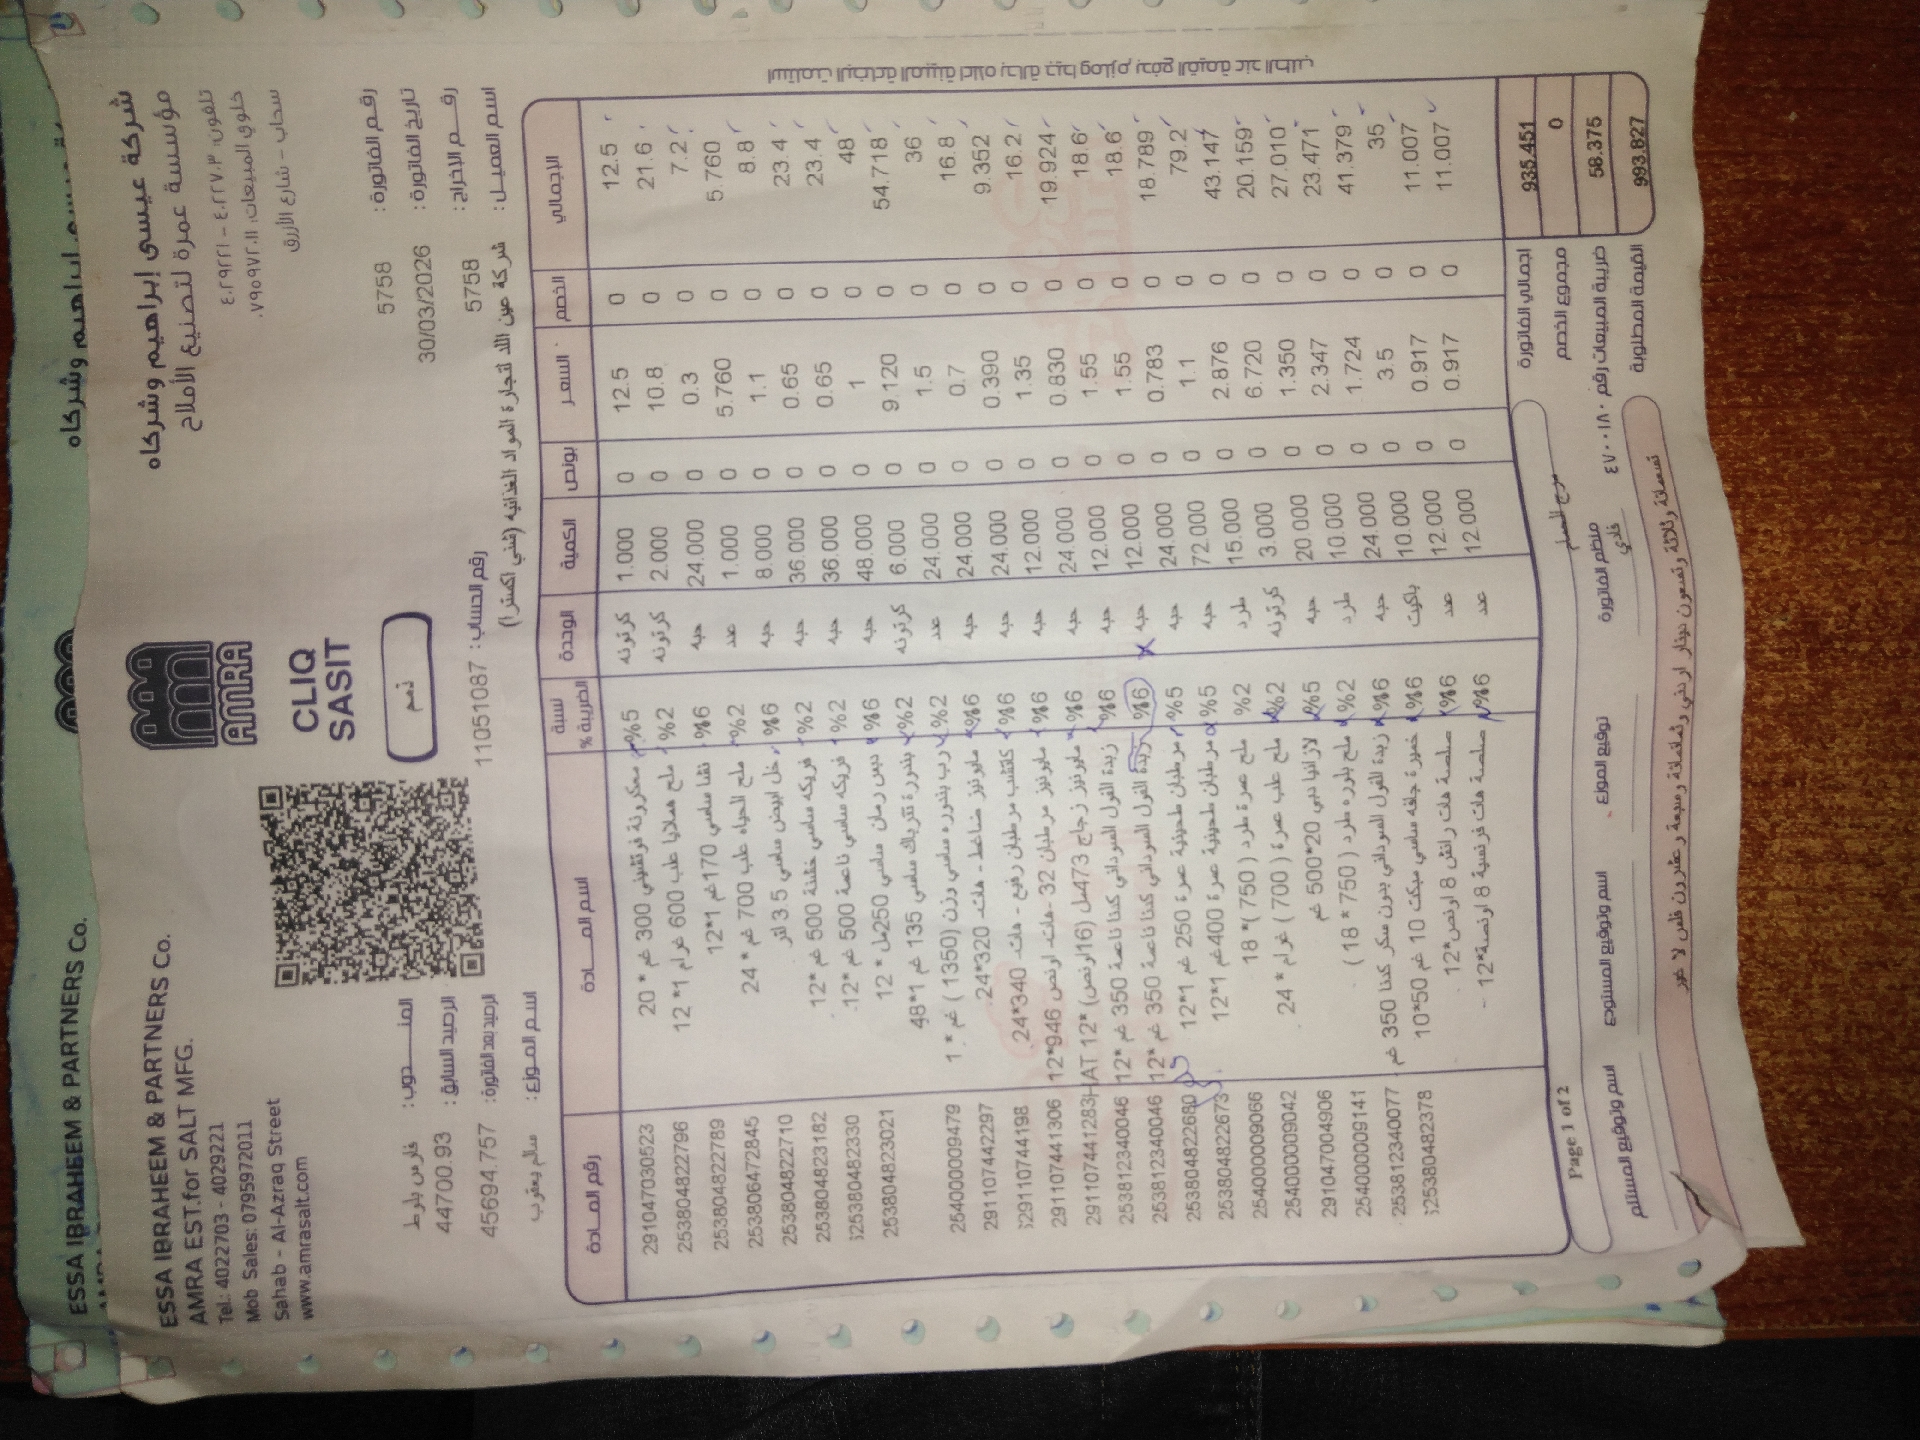 ESSA IBRAHEEM & PARTNERS Co.
شركة عيسى إبراهيم وشركاه
ESSA IBRAHEEM & PARTNERS Co.
AMRA EST.for SALT MFG.
Tel.: 4022703 - 4029221
Mob Sales: 0795972011
Sahab - Al-Azraq Street
www.amrasalt.com
AMRA
CLIQ
SASIT
ذمم
شركة عيسى إبراهيم وشركاه
مؤسسة عمرة لتصنيع الأملاح
تلفون: ٤٠٢٢٧٠٣ - ٤٠٢٩٢٢١
خلوي المبيعات: ٠٧٩٥٩٧٢٠١١
سحاب - شارع الأزرق
رقم الفاتورة: 5758
تاريخ الفاتورة: 30/03/2026
رقم الاخراج: 5758
اسم العميل: شركة عين اللد لتجارة المواد الغذائيه (شني اكسترا)
رقم الحساب: 11051087
المندوب: فارس بلوط
الرصيد السابق: 44700.93
الرصيد بعد الفاتورة: 45694.757
اسم الموزع: سالم يعقوب
رقم المادة اسم المادة نسبة الضريبة % الوحدة الكمية بونص السعر الخصم الإجمالي
291047030523 معكرونة فرتشيني 300 غم * 20 %5 كرتونه 1.000 0 12.5 0 12.5
2538048822796 ملح هملايا علب 600 غرام 1* 12 %2 كرتونه 2.000 0 10.8 0 21.6
2538048822789 نشا ساسي 170غم 1*12 %6 حبه 24.000 0 0.3 0 7.2
2538064728 45 ملح الحياه علب 700 غم * 24 %2 عدد 1.000 0 5.760 0 5.760
253804822710 خل ابيض ساسي 3.5 لتر %6 حبه 8.000 0 1.1 0 8.8
253804823182 فريكه ساسي خشنة 500 غم *12 %2 حبه 36.000 0 0.65 0 23.4
25380482330 فريكه ساسي ناعمة 500 غم *12 %2 حبه 36.000 0 0.65 0 23.4
253804823021 دبس رمان ساسي 250مل * 12 %6 حبه 48.000 0 1 0 48
بندورة تتريك ساسي 135 غم 1*48 %2 كرتونه 6.000 0 9.120 0 54.718
254000009479 رب بندوره ساسي وزن (1350 ) غم * 1 %2 عدد 24.000 0 1.5 0 36
291107442297 مايونيز ضاغط - هات- 320*24 %6 حبه 24.000 0 0.7 0 16.8
29110744198 كاتشب مرطبان رفيع - هات- 340*24 %6 حبه 24.000 0 0.390 0 9.352
291107441306 مايونيز مرطبان 32 -هات- اونص 946*12 %6 حبه 12.000 0 1.35 0 16.2
291107441283 مايونيز زجاج 473مل (16اونص) *12 HAT %6 حبه 24.000 0 0.830 0 19.924
253812340046 زبدة الفول السوداني كندا ناعمة 350 غم *12 %6 حبه 12.000 0 1.55 0 18.6
253812340046 زبدة الفول السوداني كندا ناعمة 350 غم *12 %6 حبه 12.000 0 1.55 0 18.6
253804822680 مرطبان طحينية عمرة 250 غم 1*12 %5 حبه 24.000 0 0.783 0 18.789
253804822673 مرطبان طحينية عمرة 400غم 1*12 %5 حبه 72.000 0 1.1 0 79.2
254000009066 ملح عمرة طرد ( 750 )* 18 %2 طرد 15.000 0 2.876 0 43.147
254000009042 ملح علب عمرة ( 700 ) غرام * 24 %2 كرتونه 3.000 0 6.720 0 20.159
291047004906 لازانيا دبي 20*500 غم %5 حبه 20 000 0 1.350 0 27.010
254000009141 ملح بلوره طرد ( 750 * 18 ) %2 طرد 10.000 0 2.347 0 23.471
253812340077 زبدة الفول السوداني بدون سكر كندا 350 غم %6 حبه 24.000 0 1.724 0 41.379
25380482378 خميرة جافه ساسي مبكت 10 غم 50*10 %6 باكيت 10.000 0 3.5 0 35
صلصة هات رانش 8 اونص*12 %6 عدد 12.000 0 0.917 0 11.007
صلصة هات فرنسية 8 اونصة*12 %6 عدد 12.000 0 0.917 0 11.007
اجمالي الفاتورة 935.451
مجموع الخصم 0
ضريبة المبيعات رقم ٤٧٠٠١٨٠ 58.375
القيمة المطلوبة 993.827
Page 1 of 2
اسم وتوقيع المستلم
اسم وتوقيع المستودع
توقيع الموزع
منظم الفاتورة
فادي
تسعمائة وثلاثة وتسعون دينار اردني وثمانمائة وسبعة وعشرون فلس لا غير